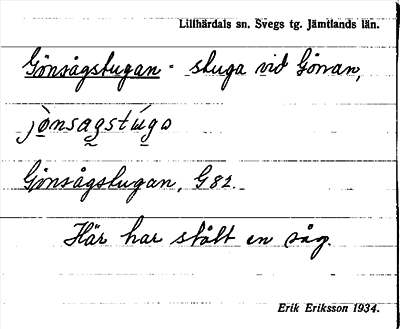 Lillhärdals sn. Svegs tg. Jämtlands län.
Gönsågstugan - stuga vid Görran,
jònsagstúgo
Gönsågstugan, G82.
Här har stått en såg.
Erik Eriksson 1934.